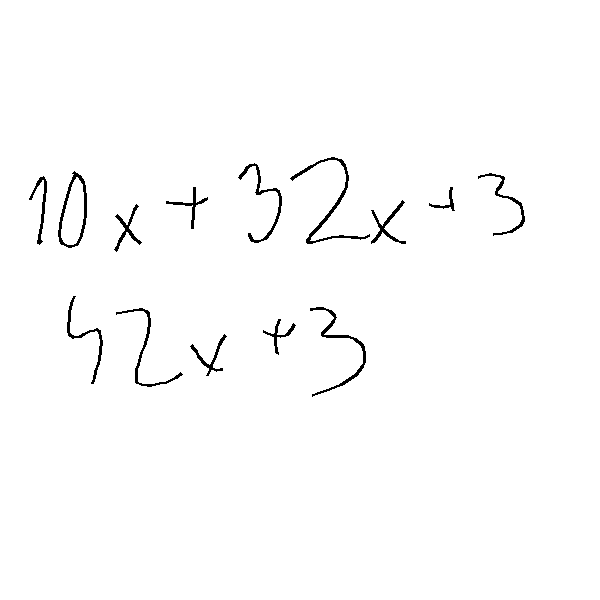 10x + 32x + 3
42x + 3